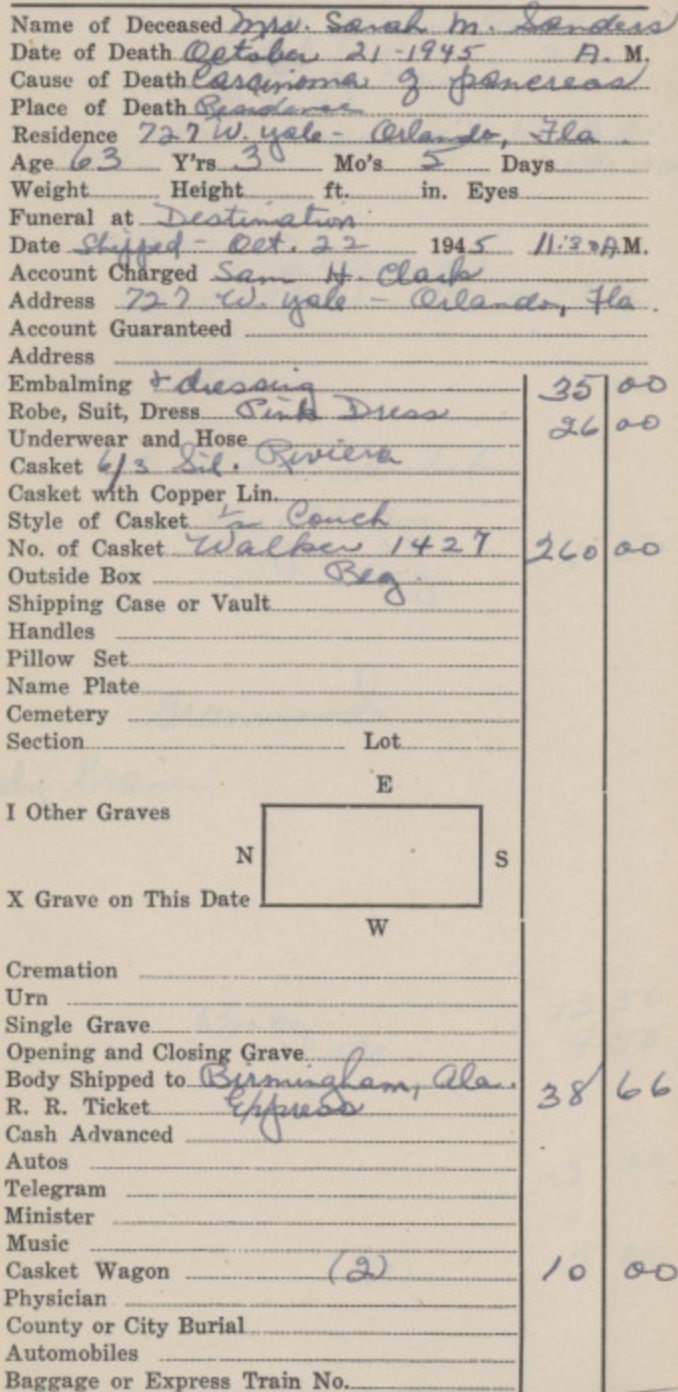 Name of Deceased Mrs. Sarah M. Sanders
Date of Death October 21-1945 A. M.
Cause of Death Carcinoma of pancreas
Place of Death Residence
Residence 727 W. Yale - Orlando, Fla.
Age 63 Y'rs 3 Mo's 5 Days
Weight Height ft. in. Eyes
Funeral at Destination
Date Shipped - Oct. 22 1945 11:30 A.M.
Account Charged Sam H. Clark
Address 727 W. Yale - Orlando, Fla.
Account Guaranteed
Address
Embalming & dressing 35 00
Robe, Suit, Dress Pink Dress 26 00
Underwear and Hose
Casket 6/3 Sil. Riviera
Casket with Copper Lin.
Style of Casket ½ Couch
No. of Casket Walker 1427 260 00
Outside Box Beg.
Shipping Case or Vault
Handles
Pillow Set
Name Plate
Cemetery
Section Lot
E
I Other Graves
N S
X Grave on This Date
W
Cremation
Urn
Single Grave
Opening and Closing Grave
Body Shipped to Birmingham, Ala. 38 66
R. R. Ticket Express
Cash Advanced
Autos
Telegram
Minister
Music
Casket Wagon (2) 10 00
Physician
County or City Burial
Automobiles
Baggage or Express Train No.